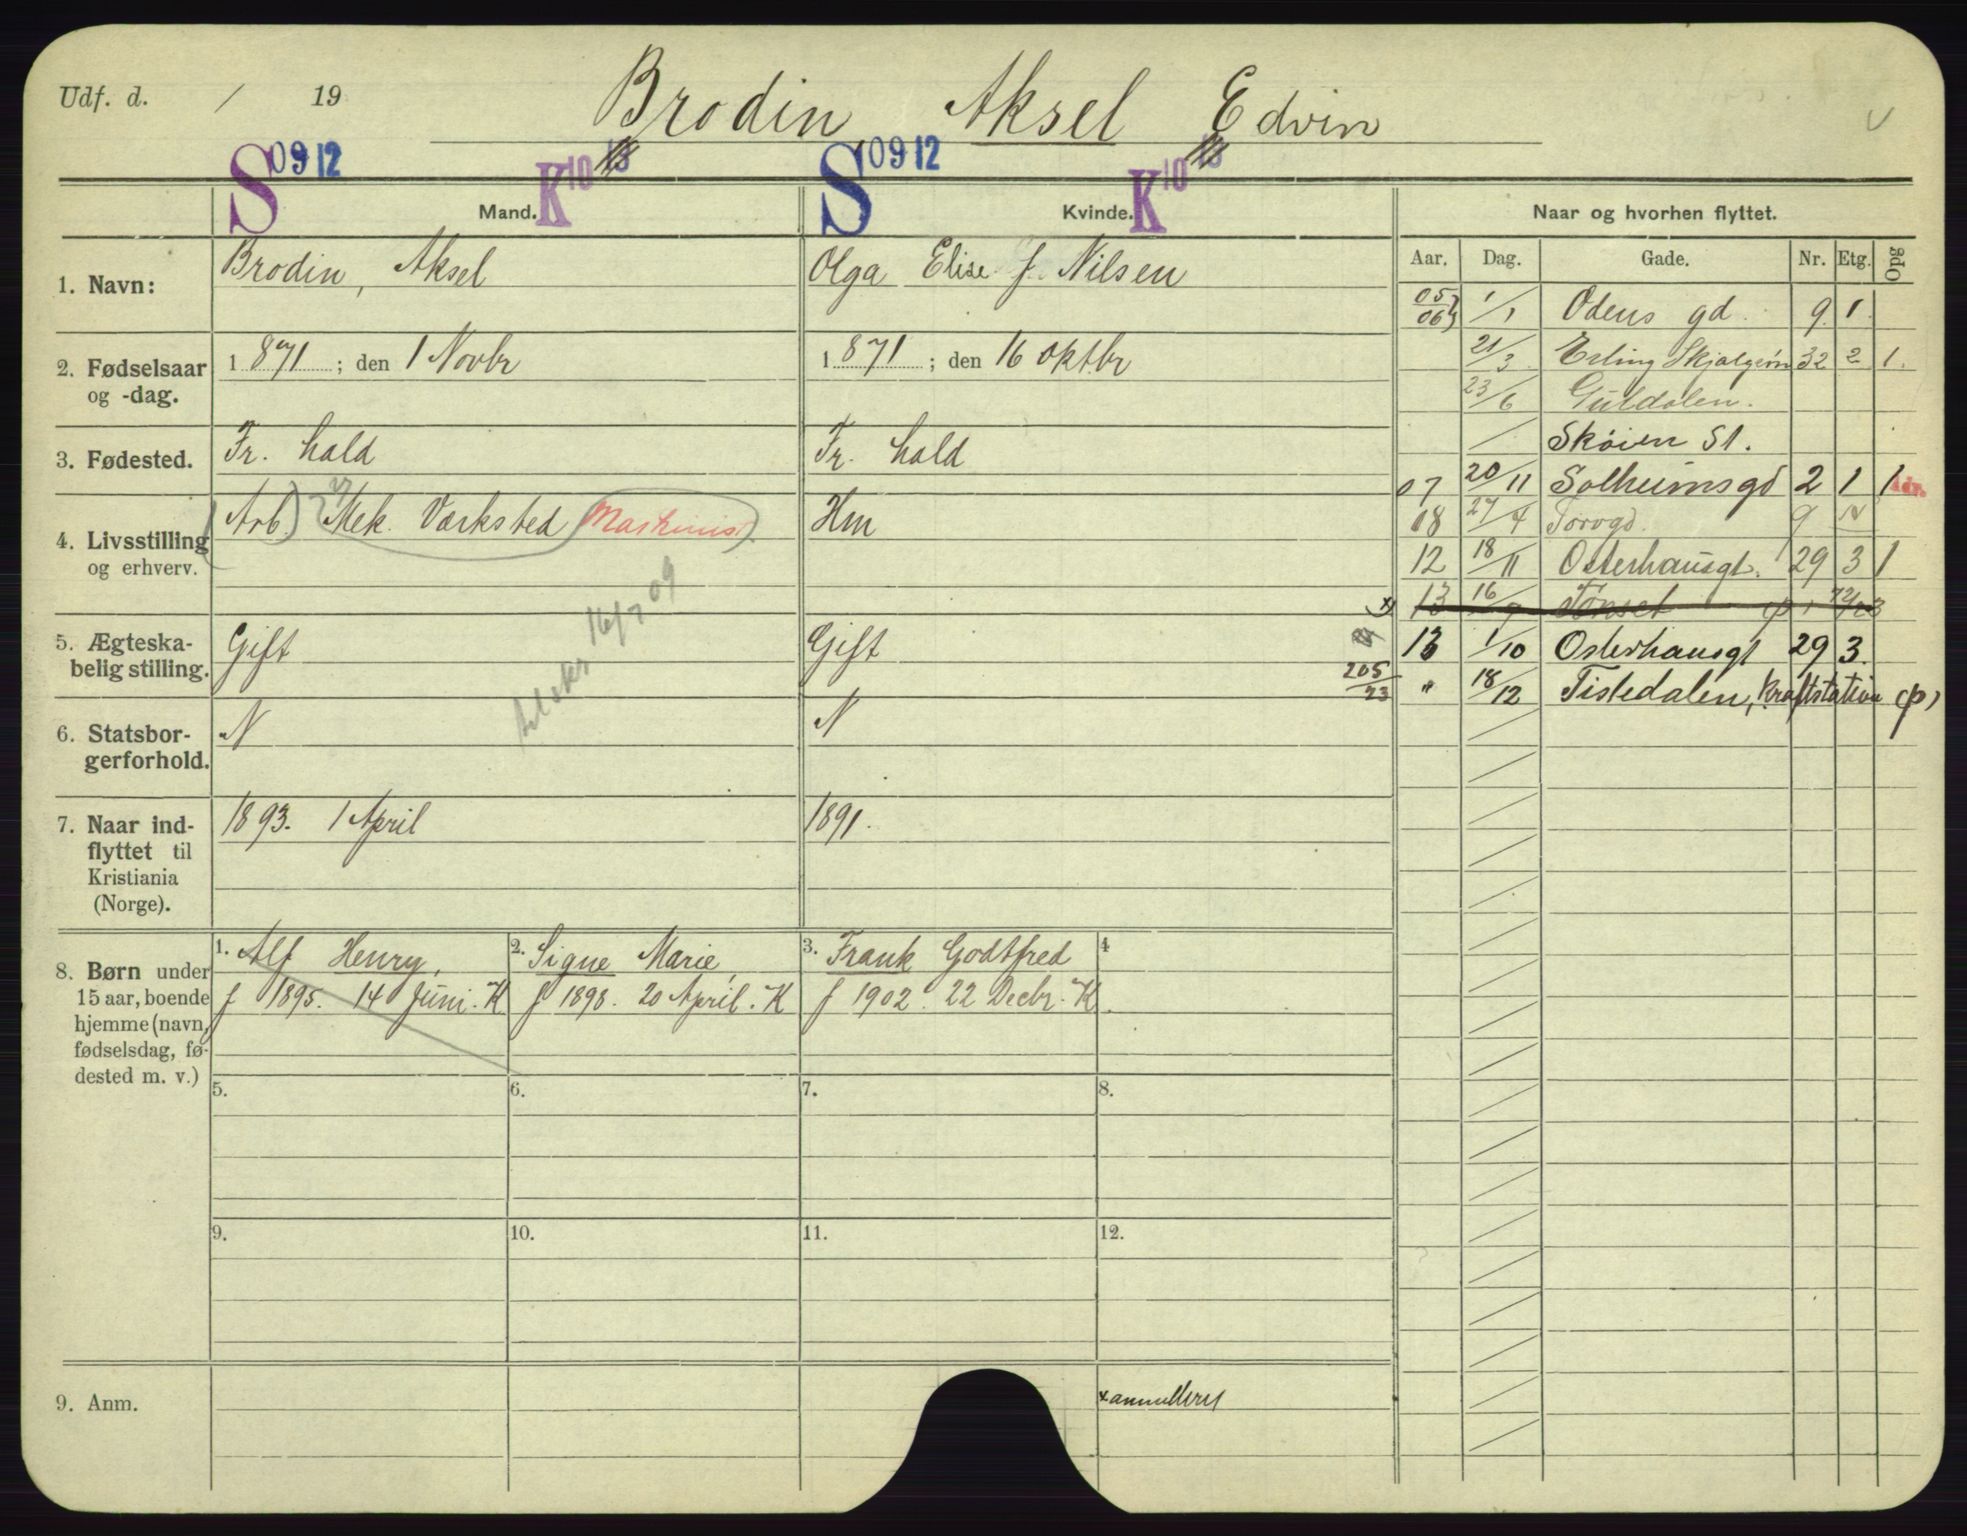 Udf. d. / 19
Brodin Aksel Edvin
S 09 12 K 10 S 09 12 K 10
Mand. Kvinde. Naar og hvorhen flyttet.
Aar. Dag. Gade. Nr. Etg. Opg
1. Navn: Brodin, Aksel Olga Elise f. Nilsen
2. Fødselsaar og -dag. 1871; den 1 Novbr 1871; den 16 oktbr
3. Fødested. Fr. hald Fr. hald
4. Livsstilling og erhverv. (Arb.) Mek. Værksted (Maskinist) Hm
16/7 09
5. Ægteska-
belig stilling. Gift Gift
6. Statsbor-
gerforhold. N N
7. Naar ind-
flyttet til
Kristiania
(Norge). 1893. 1 April 1891.
05 06 1/1 Odens gd. 9. 1.
21/3 Erling Skjalgsøn 32 2 1.
23/6 Guldalen.
/ Skøien St.
07 20/11 Solheimsgd 2 1 1 Adr.
08 27/4 Torvgd. 9 N
12 18/11 Osterhausgt. 29 3 1
x) 13 16/9 Tønset
13 1/10 Osterhausgt 29 3.
205/23 " 18/12 Tistedalen, Kraftstation (p)
8. Børn under
15 aar, boende
hjemme (navn,
fødselsdag, fø-
dested m. v.)
1. Alf Henry,
f 1895. 14 Juni. K
2. Signe Marie,
f 1898. 20 April. K
3. Frank Godtfred
f 1902. 22 Decbr. K
4
5. 6. 7. 8.
9. 10. 11. 12.
9. Anm. x annulleret